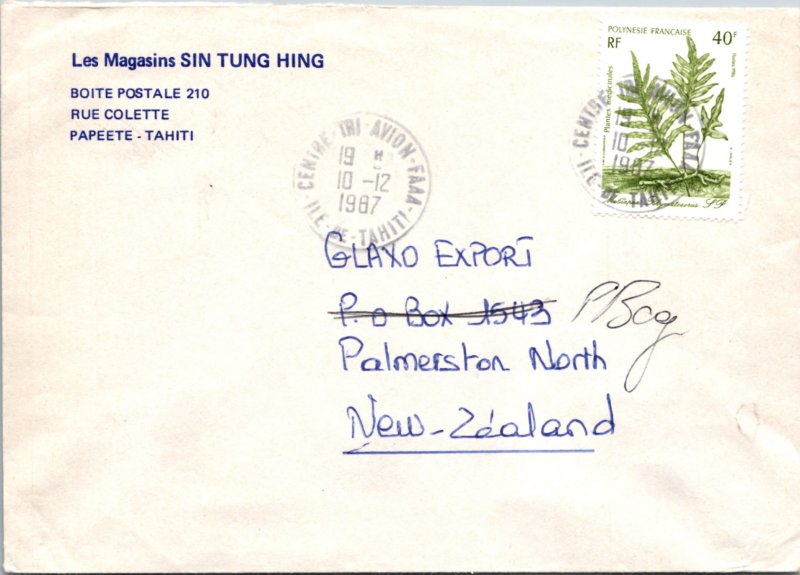 Les Magasins SIN TUNG HING
BOITE POSTALE 210
RUE COLETTE
PAPEETE - TAHITI
POLYNESIE FRANÇAISE
RF 40F
Plantes médicinales
CENTRE-TRI-AVION-FAAA
19 H
10-12
1987
ILE-DE-TAHITI
CENTRE-TRI-AVION FAAA
19
10
1987
ILE-DE-TAHITI
GLAXO EXPORT
P.o Box 1543 P/Bag
Palmerston North
New-Zéaland